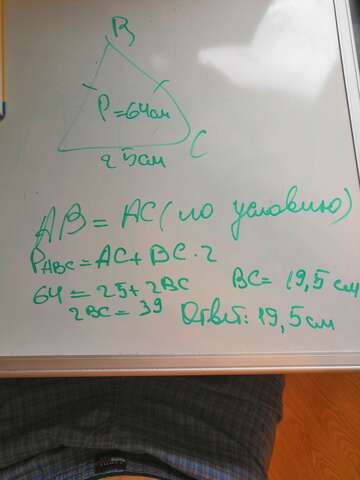 B
P=64см
C
25см
AB = AC (по условию)
PABC = AC + BC · 2
64 = 25 + 2BC
BC = 19,5 см
2BC = 39
Ответ: 19,5 см